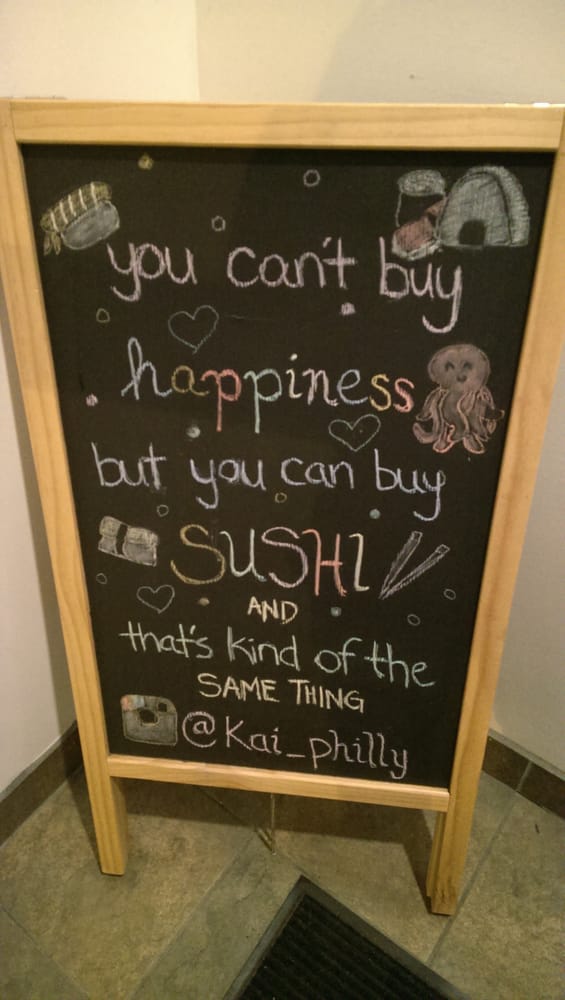 you can't buy
happiness
but you can buy
SUSHI
AND
that's kind of the
SAME THING
@Kai_philly